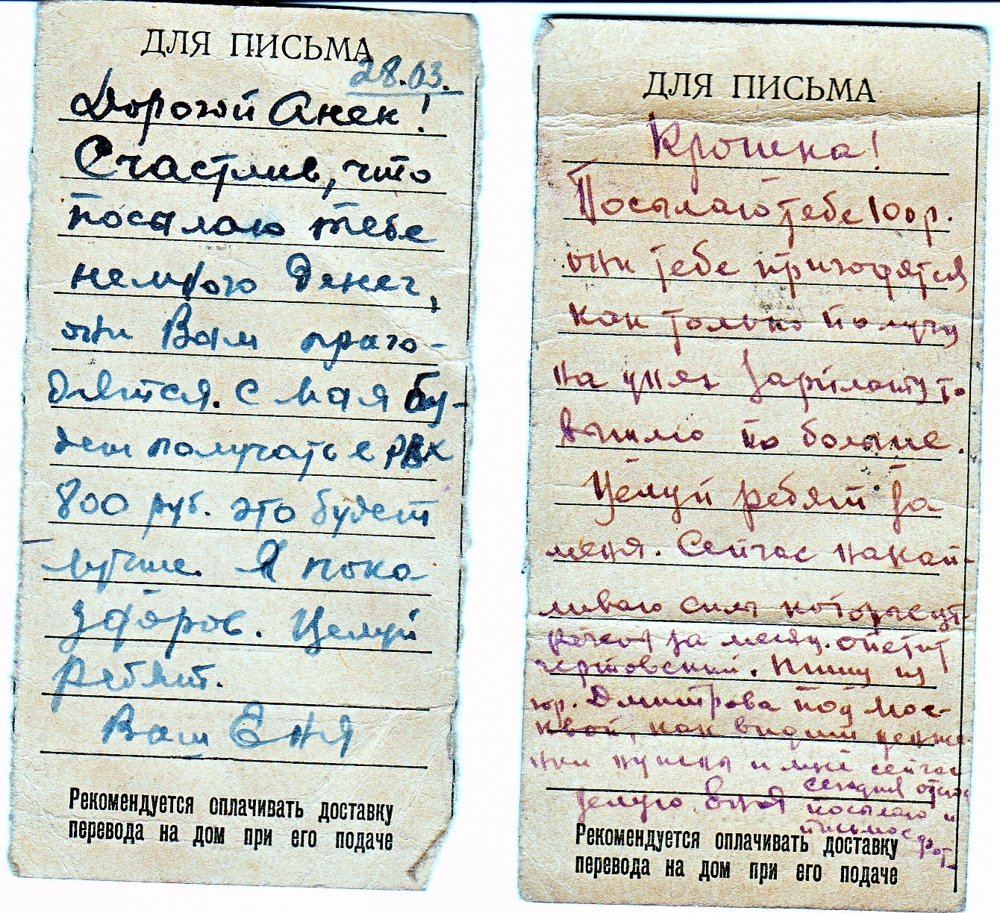 ДЛЯ ПИСЬМА
28.03.
Дорогой Анек!
Счастлив, что
посылаю тебе
немного денег,
они Вам приго-
дятся. С мая бу-
дем получать с РВК
800 руб. это будет
лучше. Я пока
здоров. Целуй
ребят.
Ваш Еня
Рекомендуется оплачивать доставку
перевода на дом при его подаче
ДЛЯ ПИСЬМА
Крошка!
Посылаю тебе 100 р.
они тебе пригодятся
как только получу
на руках зарплату то
вышлю по больше.
Целуй ребят за
меня. Сейчас накап-
ливаю силы которые ут-
рачены за месяц. Апетит
чертовский. Пишу из
гор. Дмитрова под Мос-
квой, как видишь
нужны и мне сейчас
целую Еня
сегодня
посылаю и
письмо с фот.
Рекомендуется оплачивать доставку
перевода на дом при его подаче